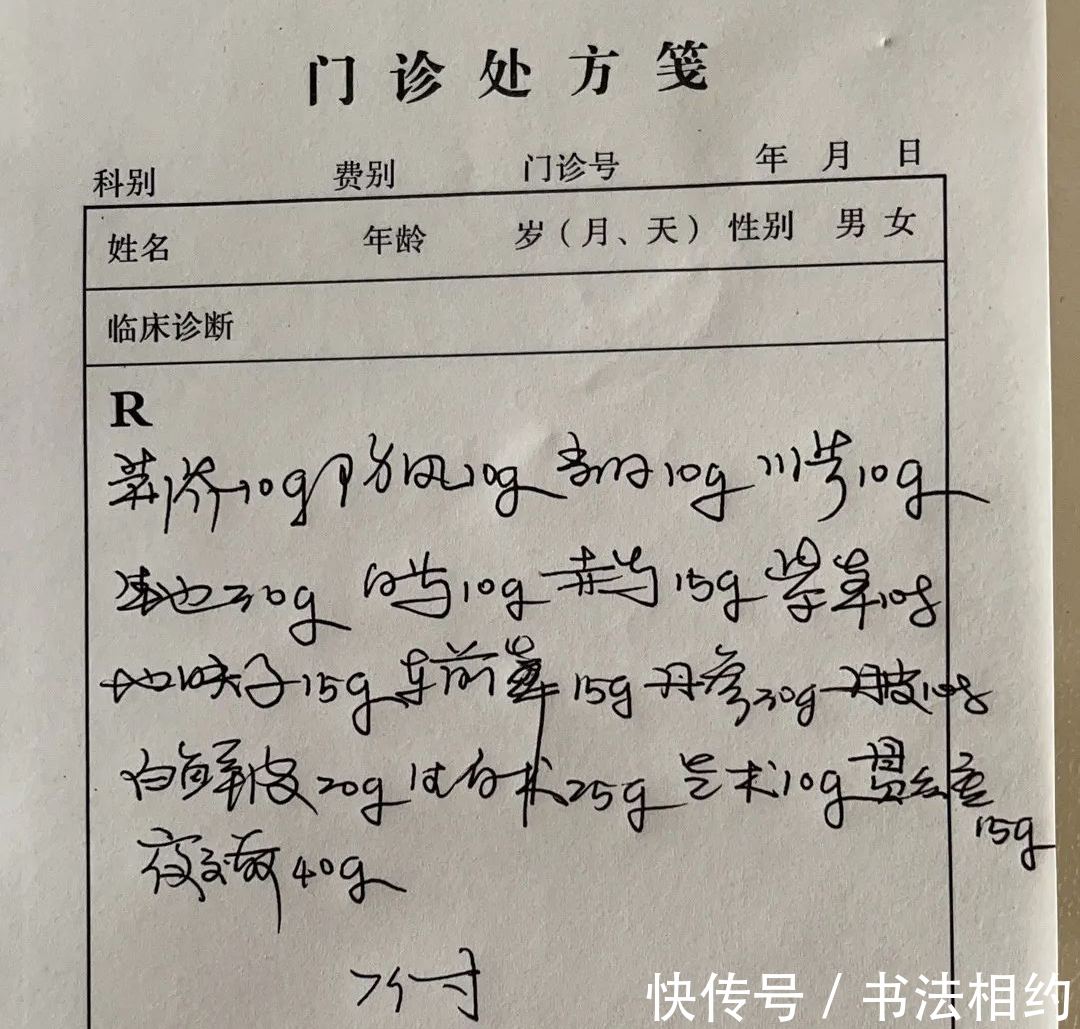 门诊处方笺
科别 费别 门诊号 年 月 日
姓名 年龄 岁(月、天) 性别 男 女
临床诊断
R
荆芥10g 防风10g 10g 川芎10g
生地30g 白芍10g 赤芍15g 紫草10g
地肤子15g 车前草15g 丹参30g 丹皮10g
白鲜皮20g 白术25g 莪术10g
15g
40g
7付
快传号 / 书法相约